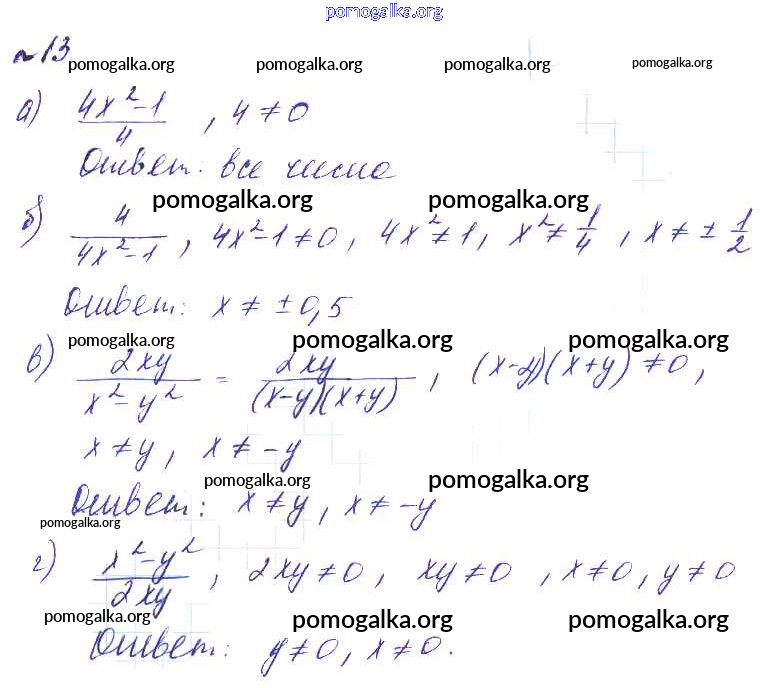 pomogalka.org
№13
pomogalka.org pomogalka.org pomogalka.org pomogalka.org
а) (4x²-1)/4 , 4 ≠ 0
Ответ: все числа
pomogalka.org pomogalka.org
б) 4/(4x²-1) , 4x²-1 ≠ 0 , 4x² ≠ 1 , x² ≠ 1/4 , x ≠ ± 1/2
Ответ: x ≠ ±0,5
pomogalka.org pomogalka.org pomogalka.org
в) 2xy/(x²-y²) = 2xy/((x-y)(x+y)) , (x-y)(x+y) ≠ 0 ,
x ≠ y , x ≠ -y
pomogalka.org pomogalka.org
Ответ: x ≠ y , x ≠ -y
pomogalka.org
г) (x²-y²)/(2xy) , 2xy ≠ 0 , xy ≠ 0 , x ≠ 0 , y ≠ 0
pomogalka.org pomogalka.org pomogalka.org
Ответ: y ≠ 0 , x ≠ 0.